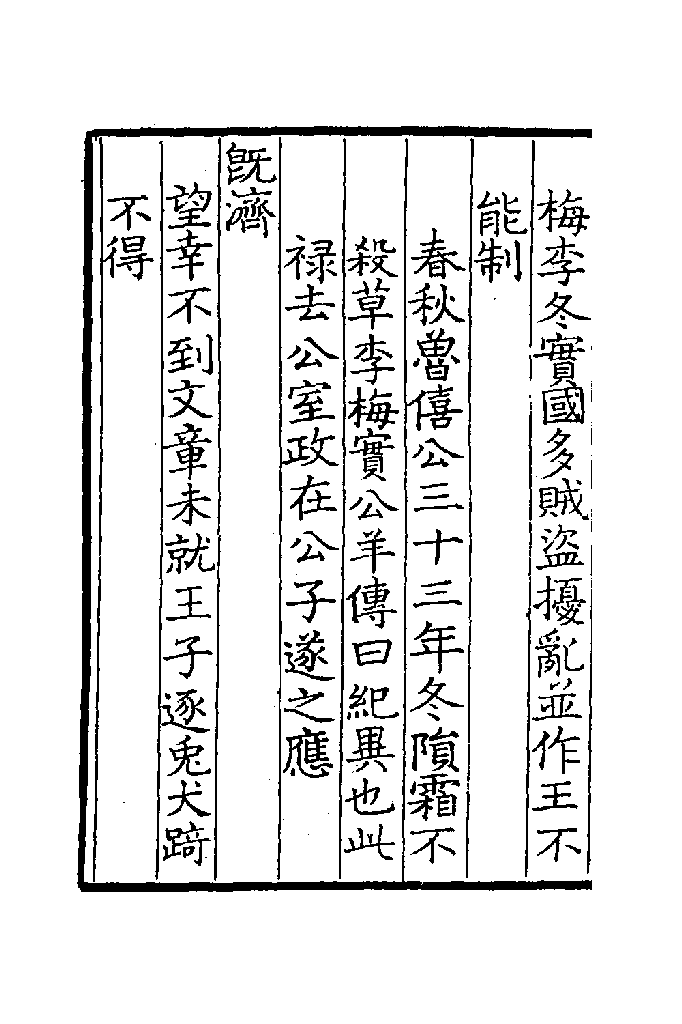 梅李冬實國多賊盜擾亂並作王不
能制
春秋魯僖公三十三年冬隕霜不
殺草李梅實公羊傳曰紀異也此
禄去公室政在公子遂之應
既濟
望幸不到文章未就王子逐兎犬踦
不得